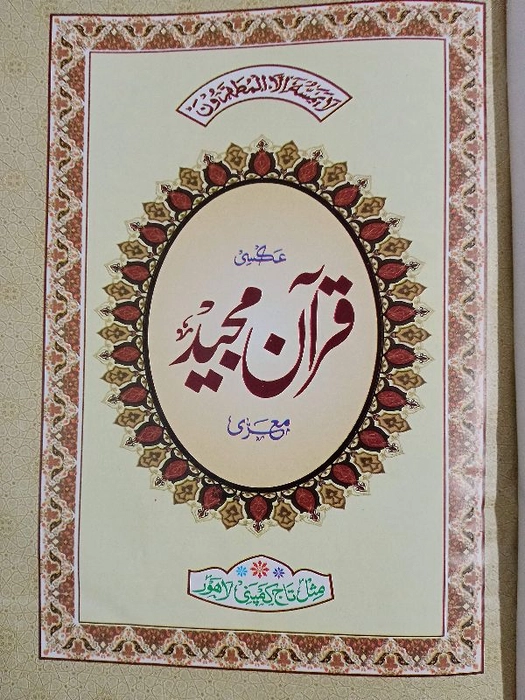 لَا يَمَسُّهٗۤ اِلَّا الْمُطَهَّرُوْنَ
عکسی
قرآن مجید
معرّٰی
مثل تاج کمپنی لاہور